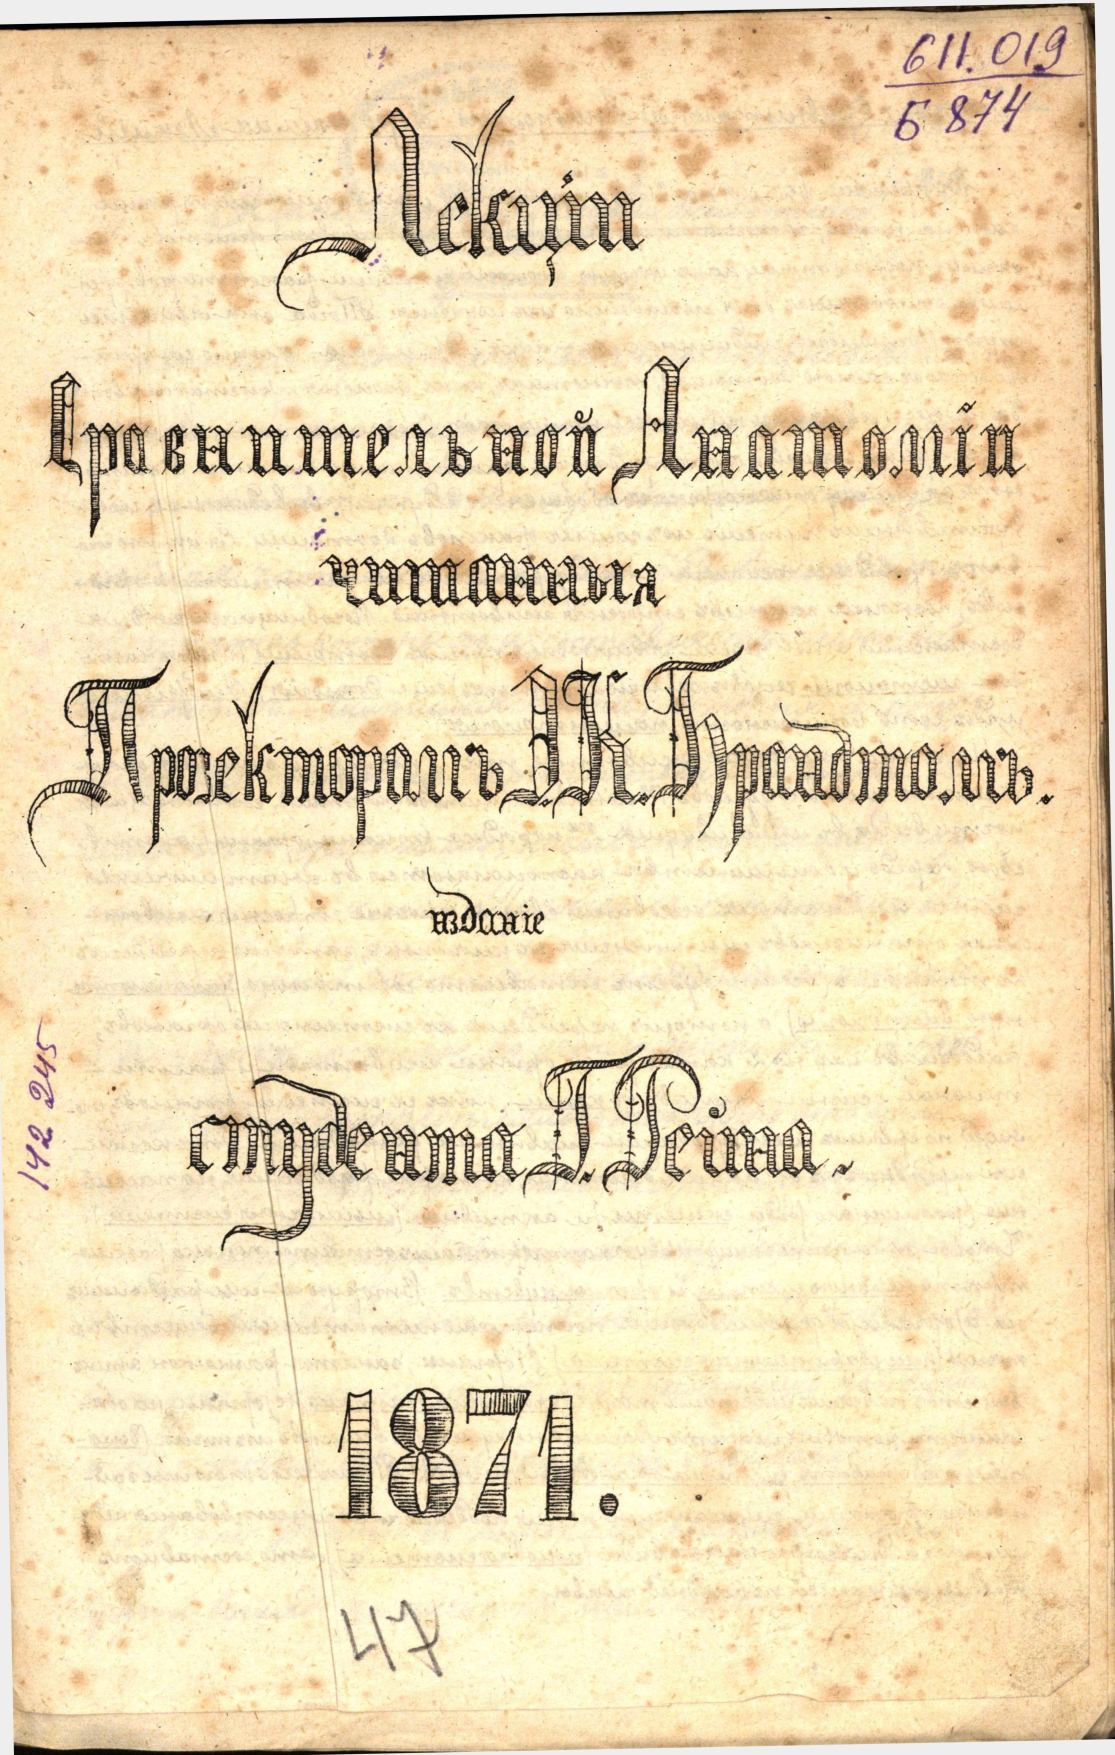 611.019
Б 874
Лекціи
Сравнительной Анатоміи
читанныя
Прозекторомъ Э.К. Брандтомъ.
изданіе
студента Г. Рейна.
1871.
47
142245